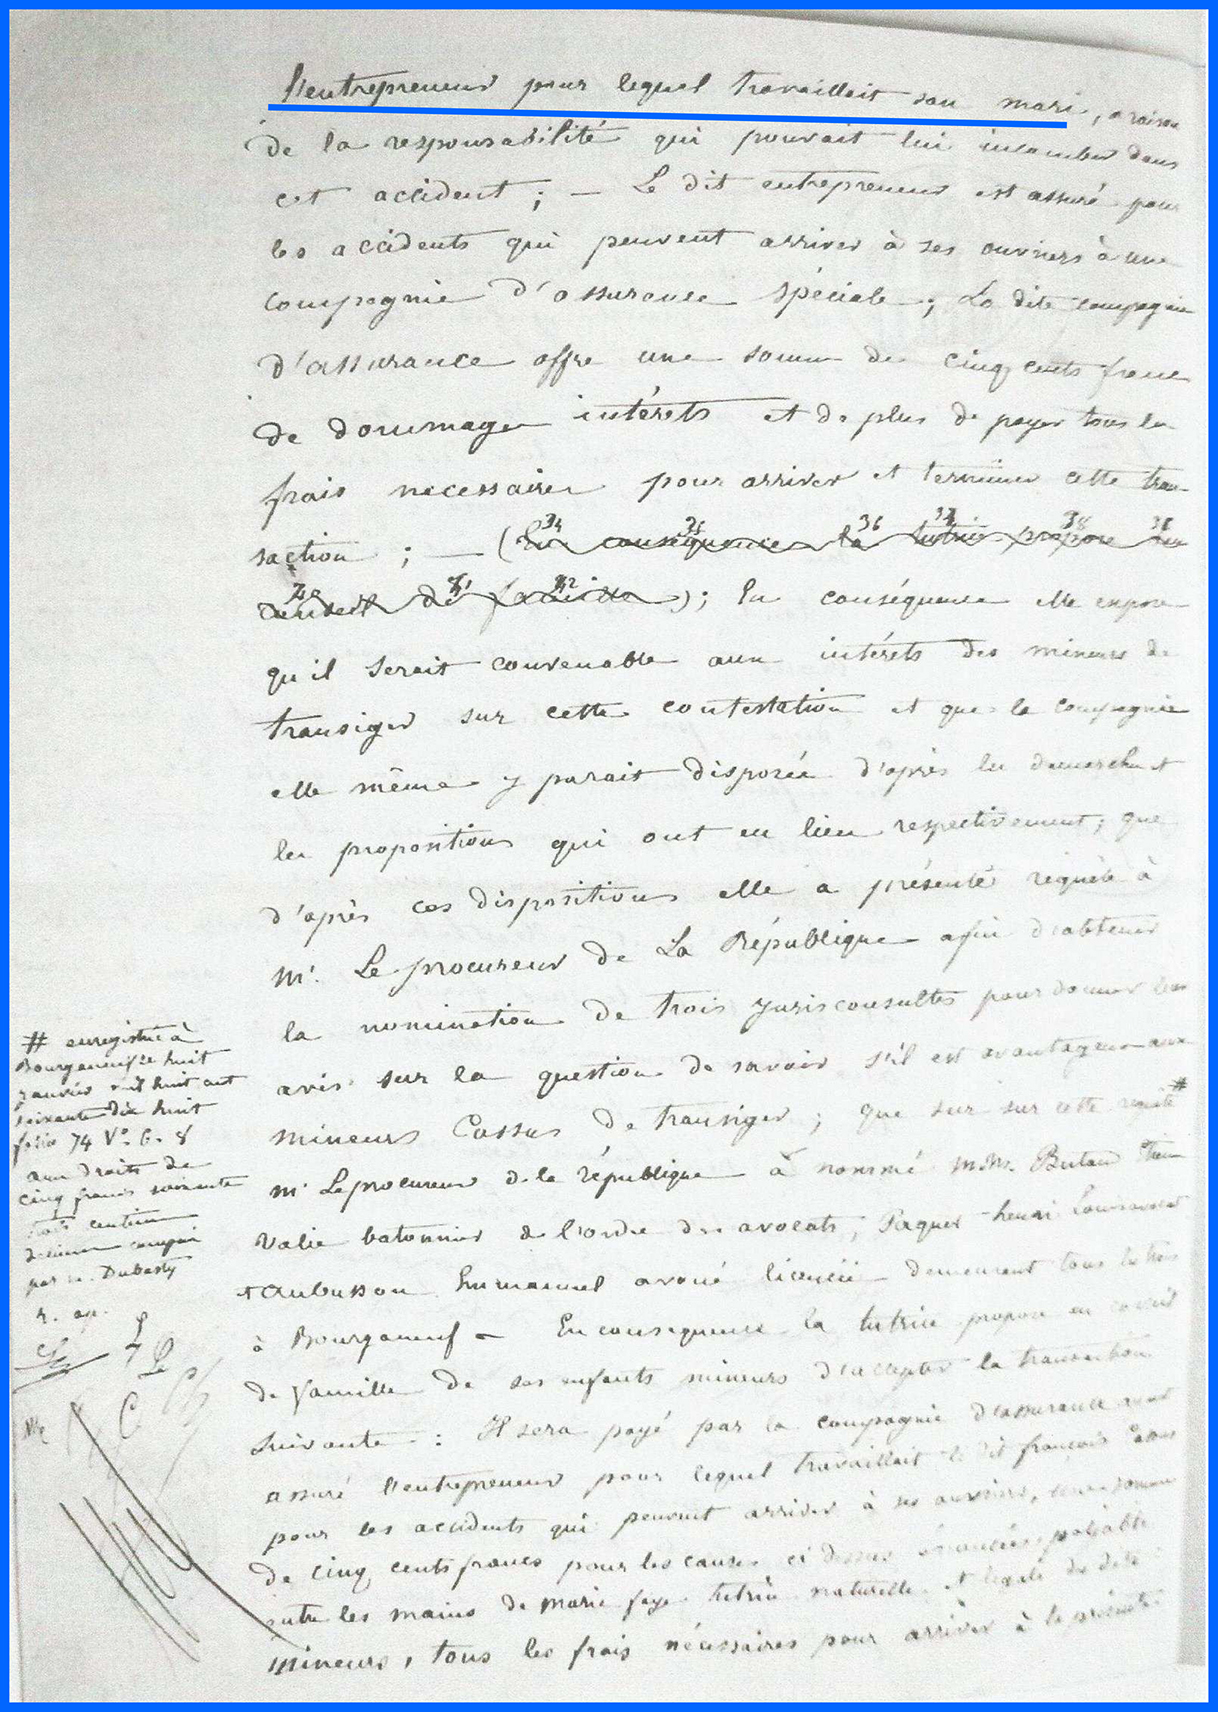 l'entrepreneur pour lequel travaillait son mari, a raison
de la responsabilité qui pouvait lui incomber dans
cet accident ; — Le dit entrepreneur est assuré pour
les accidents qui peuvent arriver à ses ouvriers à une
compagnie d'assurance spéciale ; La dite compagnie
d'assurance offre une somme de cinq cents francs
de dommages intérêts et de plus de payer tous les
frais necessaires pour arriver et terminer cette tran-
saction ; — (En conséquence la tutrice propose au
34 35 36 37 38 39
conseil de famille) ; En conséquence elle expose
40 41 42
qu'il serait convenable aux intérêts des mineurs de
transiger sur cette contestation et que la compagnie
elle même y parait disposée d'après les demarches et
les propositions qui ont eu lieu respectivement ; que
d'après ces dispositions elle a présenté requête à
Mr. Le procureur de La République afin d'obtenir
la nomination de trois jurisconsultes pour donner leur
avis sur la question de savoir s'il est avantageux aux
mineurs Cassus de transiger ; que sur sur cette requête #
mr Le procureur de la république à nommé M.M. Butaud
Valie batonnier de l'ordre des avocats ; Paquet henri
et Aubusson Emmanuel avoué licencié demeurant tous les trois
à Bourganeuf — En consequence la tutrice propose au conseil
de famille de ses enfants mineurs d'accepter la transaction
suivante : Il sera payé par la compagnie d'assurance ayant
assuré l'entrepreneur pour lequel travaillait le dit françois
pour les accidents qui peuvent arriver à ses ouvriers, une somme
de cinq cents francs pour les causes ci dessus énoncées, payable
entre les mains de Marie faye tutrice naturelle et légale des dits
mineurs, tous les frais nécessaires pour arriver à la présente
# enregistré à
Bourganeuf le huit
janvier mil huit cent
soixante dix huit
folio 74 Vo. C. 8
aux droits de
cinq francs soixante
centimes
décimes compris
par m. Dubasty